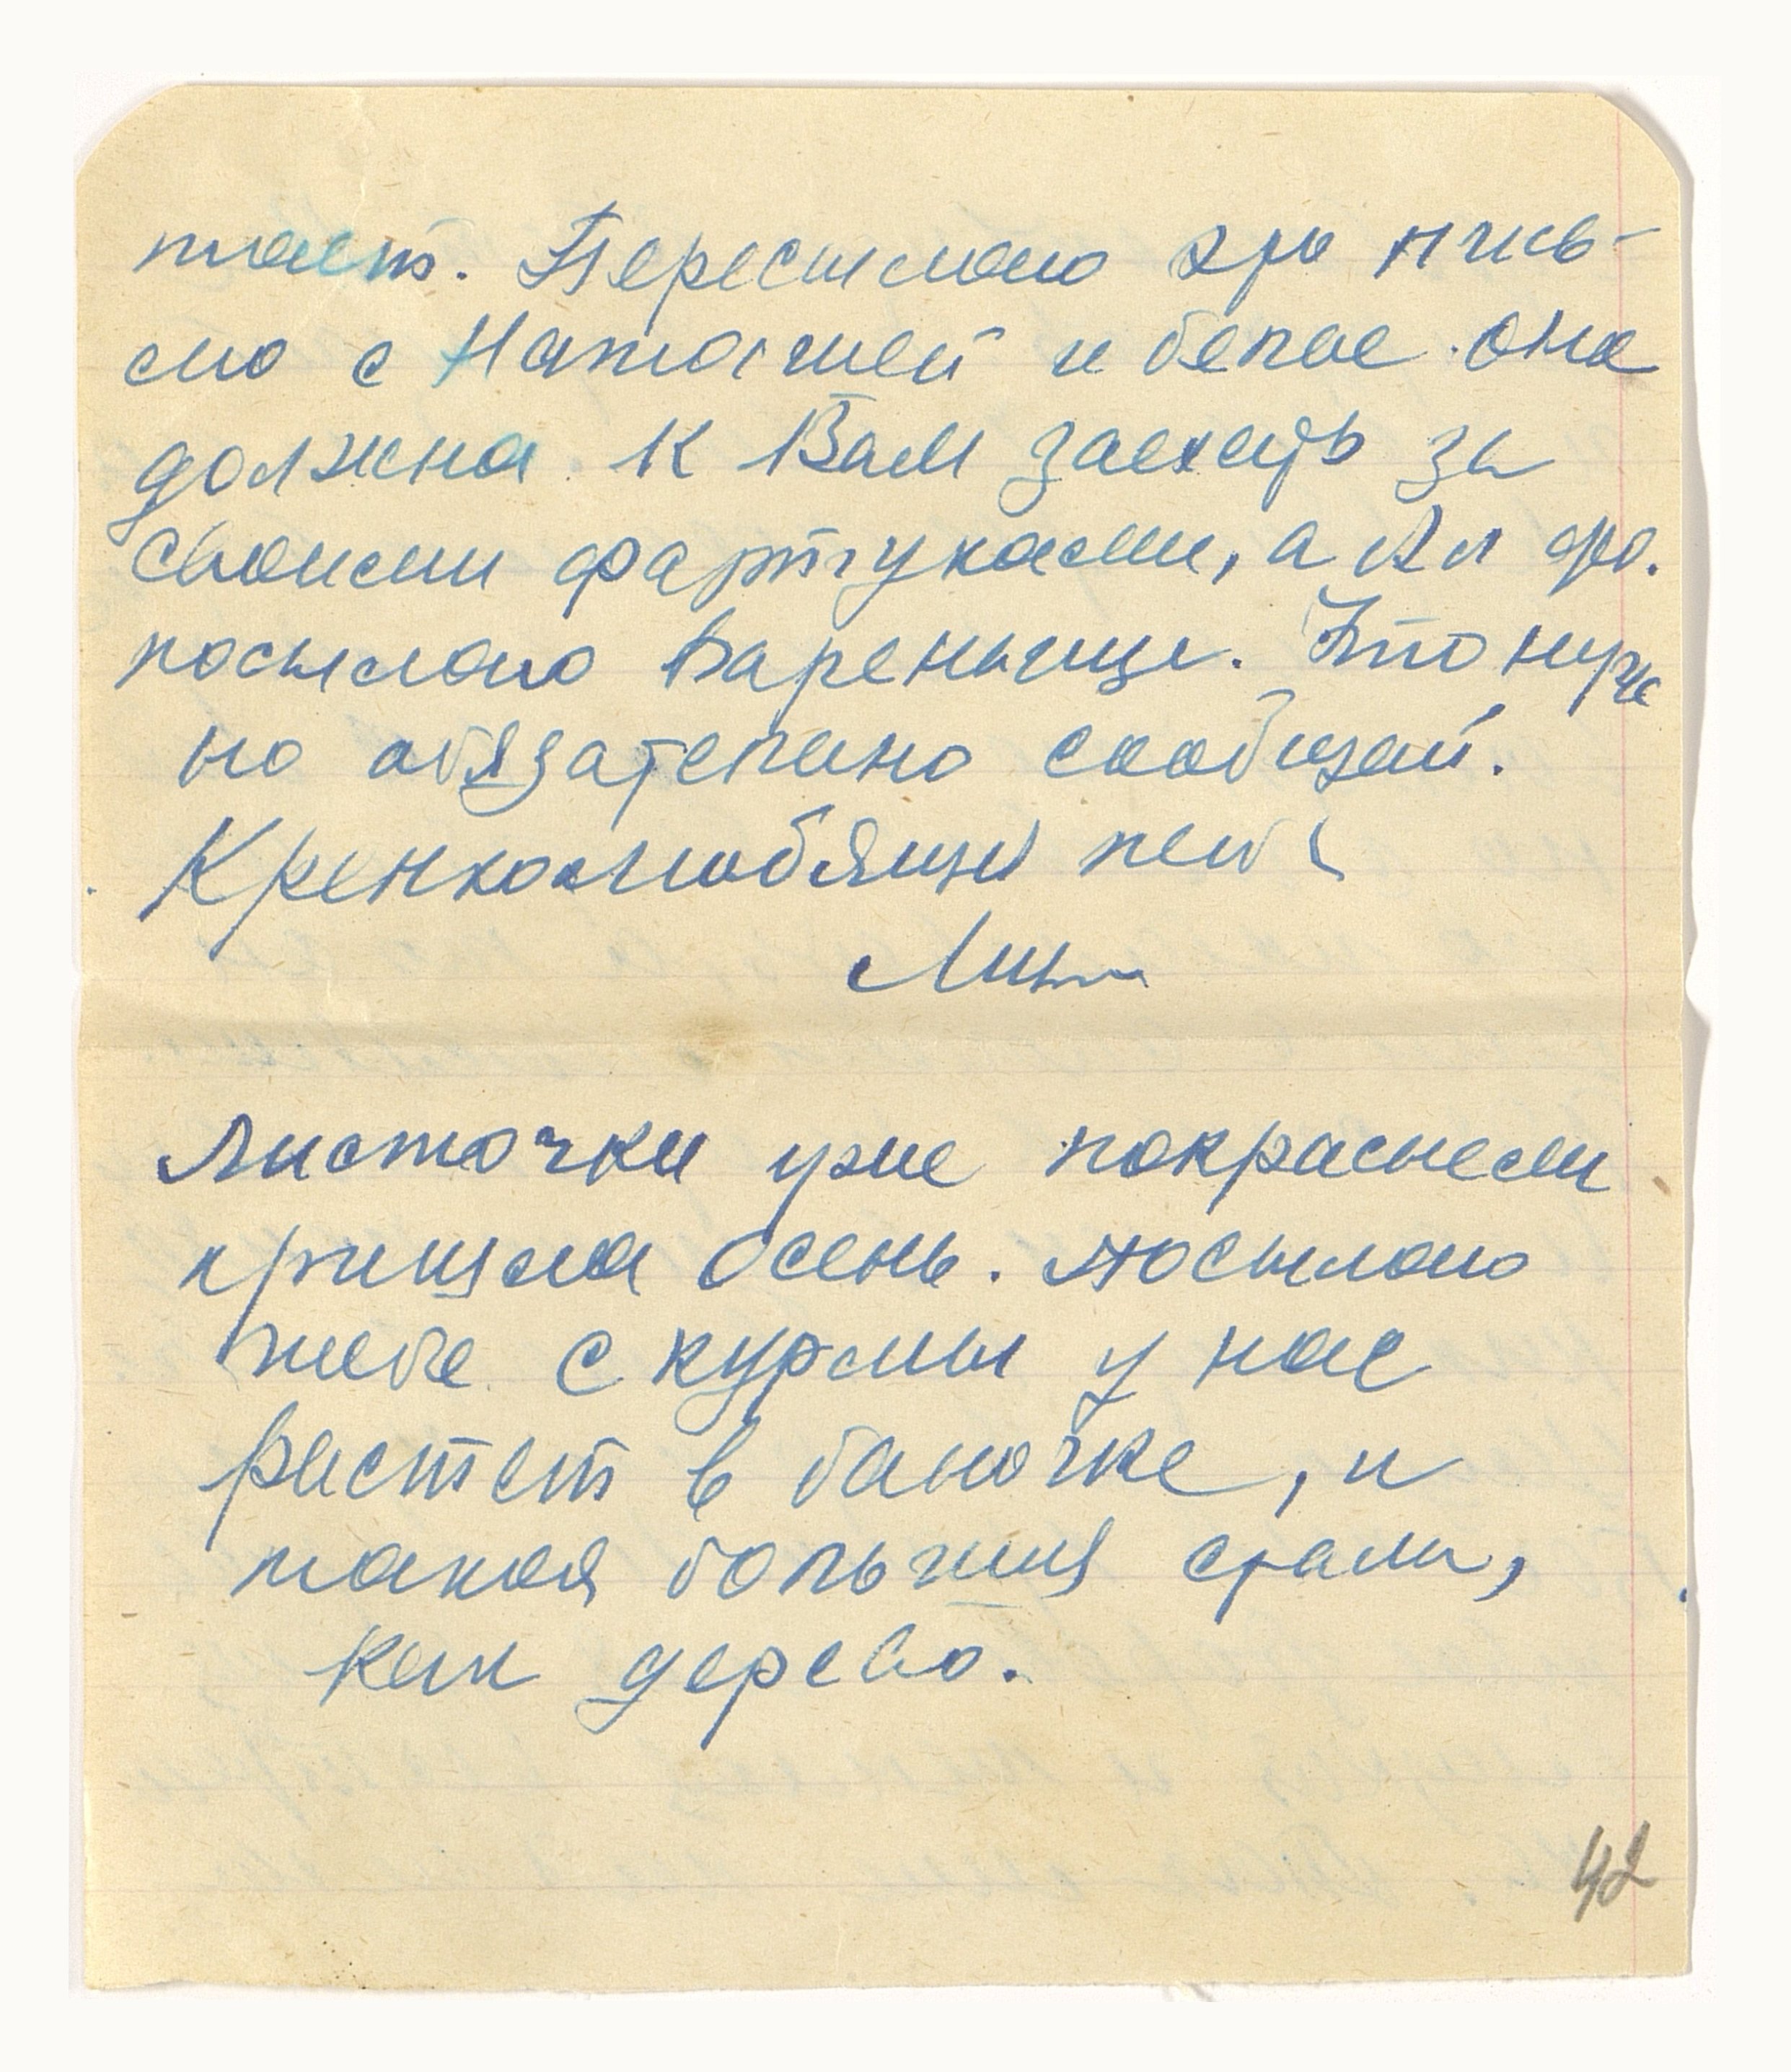 тает. Пересылаю эту пись-
мо с Наташей и белае она
должна к Вам заехать за
своими фартуками, а Ал фо.
посылаю Вареньице. Это нуж
но обязательно сообщай.
Крепко любящий тебя
Лина
Листочки уже покраснели
пришла осень. Посылаю
тебе с курмы у нас
растет в баночке, и
такая большия стали,
как дерево.
42